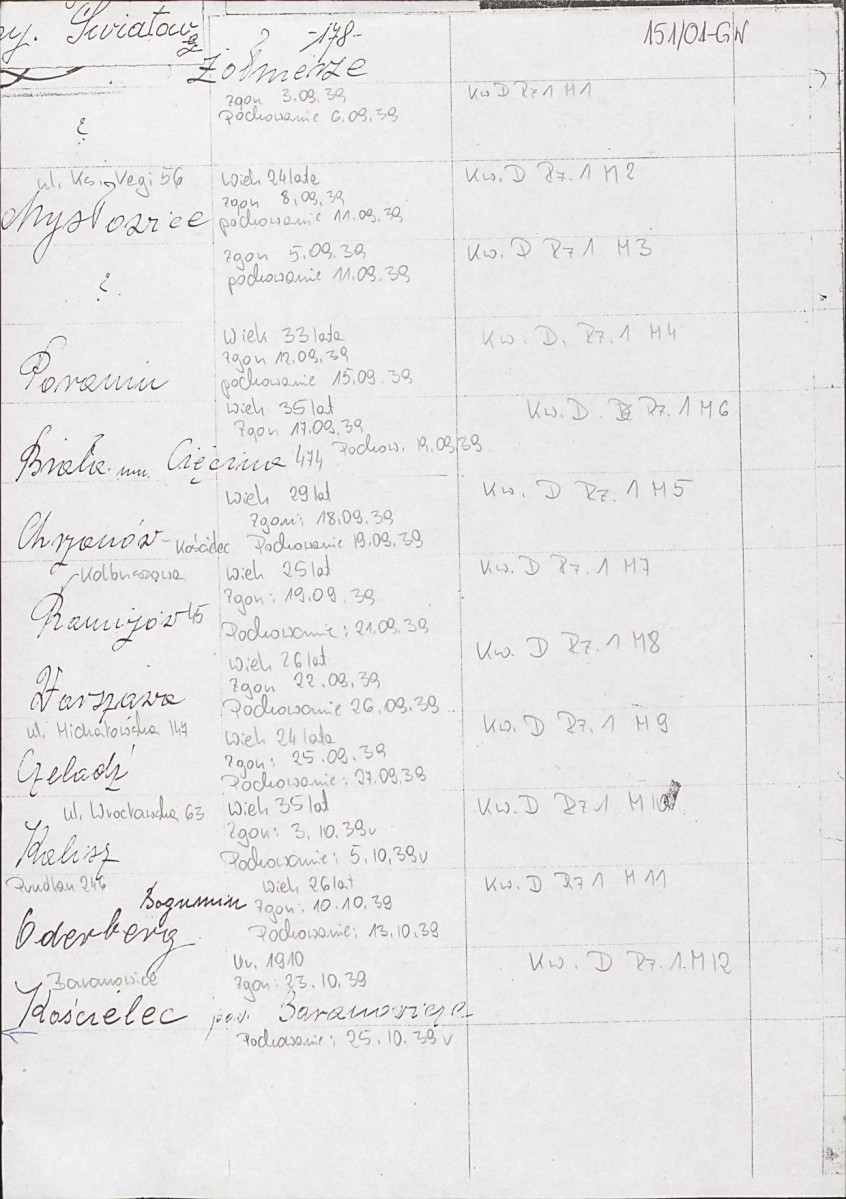 -178-
151/01-GW
Światow
Żołnierze
?
zgon 3.09.39
Pochowanie 6.09.39
Kw D Rz 1 M1
ul. Ks. Vegi 56
Mysłowice
Wiek 24 lata
zgon 8.09.39
pochowanie 11.09.39
Kw. D Rz. 1 M2
?
zgon 5.09.39
pochowanie 11.09.39
Kw. D Rz 1 M3
Wiek 33 lata
zgon 12.09.39
pochowanie 15.09.39
Kw. D. Rz. 1 M4
Wiek 35 lat
zgon 17.09.39
Pochow. 19.09.39
Biała Cięcina 474
Kw. D. Rz. 1 M6
Wiek 29 lat
Zgon: 18.09.39
Chrzanów - Kościelec
Pochowanie 19.09.39
Kw. D Rz. 1 M5
Kolbuszowa
45
Wiek 25 lat
Zgon: 19.09.39
Pochowanie: 21.09.39
Kw. D Rz. 1 M7
Warszawa
Wiek 26 lat
Zgon 22.09.39
Pochowanie 26.09.39
Kw. D Rz. 1 M8
ul. Michałowska 147
Czeladź
Wiek 24 lata
zgon: 25.09.39
Pochowanie: 27.09.39
Kw. D Rz. 1 M9
ul. Wrocławska 63
Kalisz
Wiek 35 lat
Zgon: 3.10.39 v
Pochowanie: 5.10.39 v
Kw. D Rz. 1 M10
246
Bogumin
Oderberg
Wiek 26 lat
Zgon: 10.10.39
Pochowanie: 13.10.39
Kw. D Rz 1 M11
Baranowice
Ur. 1910
Zgon: 23.10.39
Kościelec pow.
Pochowanie: 25.10.39 v
Kw. D Rz. 1. M12